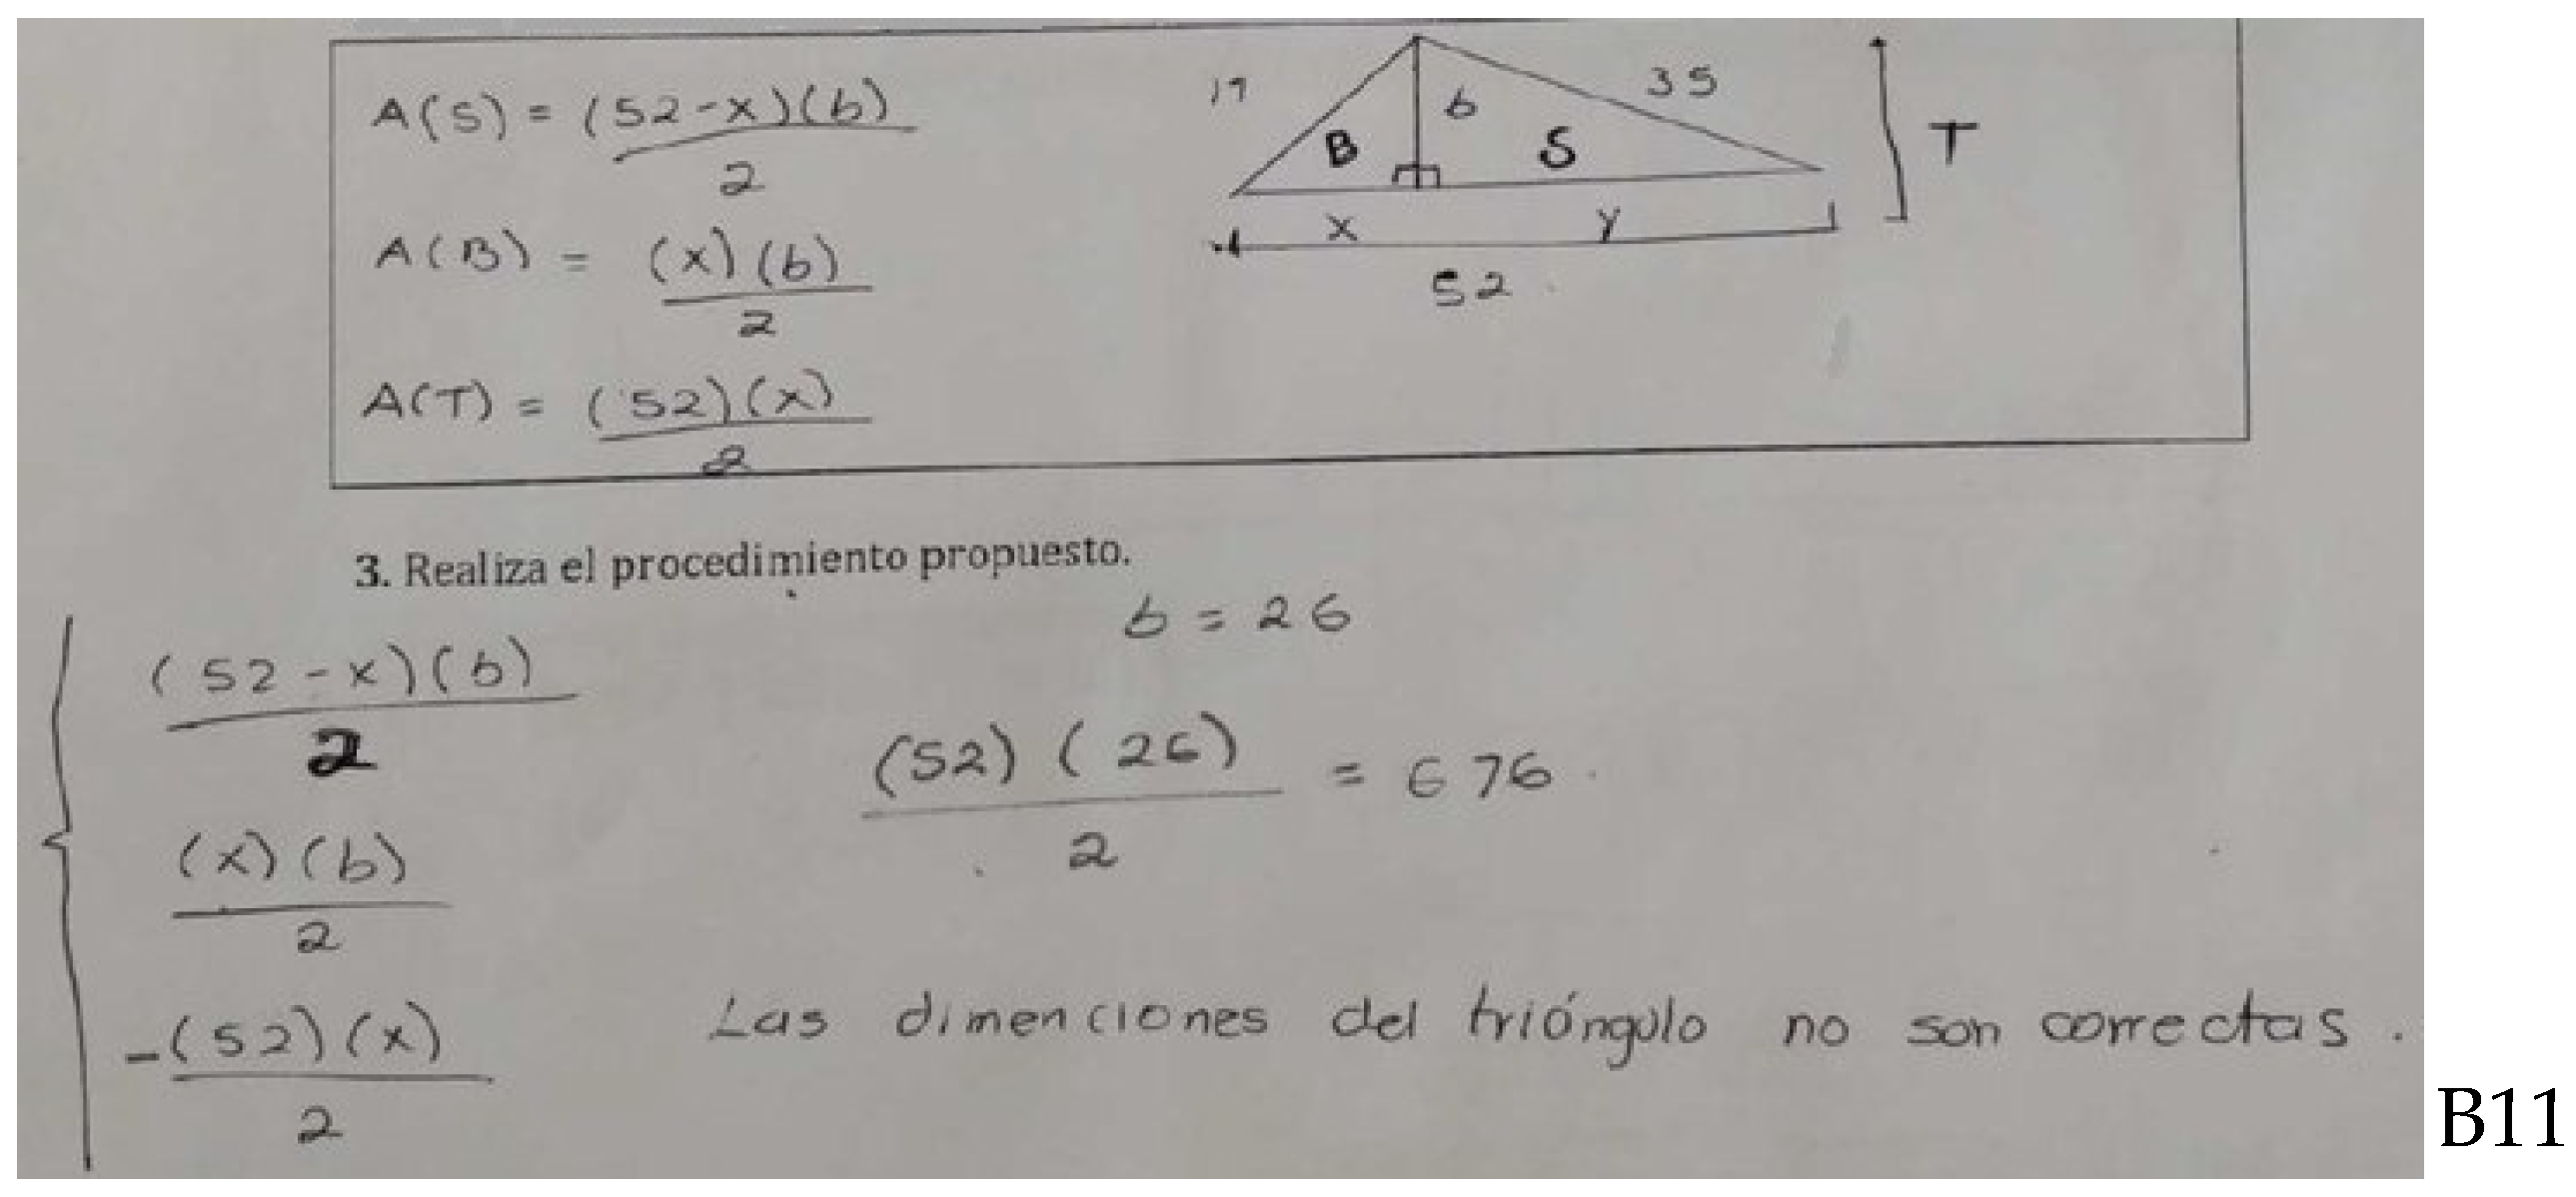 A(S) = (52-x)(b)
2
A(B) = (x)(b)
2
A(T) = (52)(x)
2
17
35
b
B
S
T
x
y
52
3. Realiza el procedimiento propuesto.
b = 26
(52-x)(b)
2
(52)(26) = 676
2
(x)(b)
2
-(52)(x)
2
Las dimenciones del triángulo no son correctas.
B11